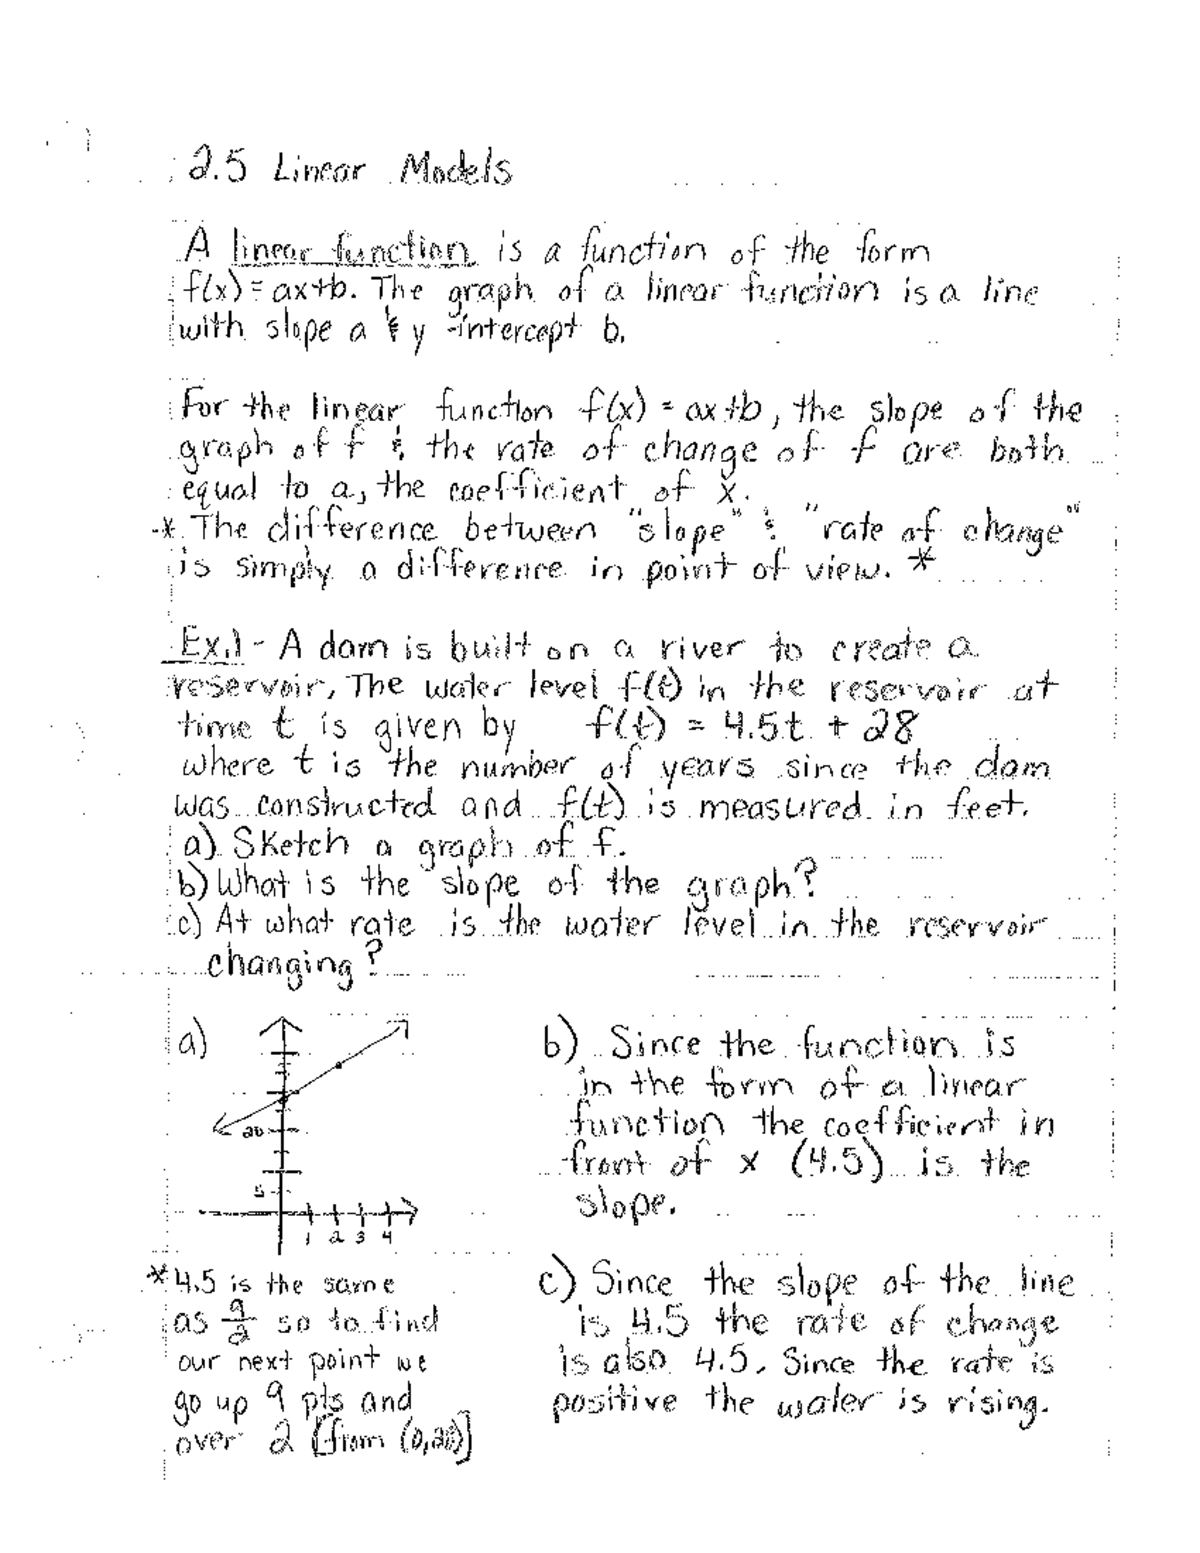 2.5 Linear Models
A linear function is a function of the form
f(x) = ax+b. The graph of a linear function is a line
with slope a & y-intercept b.
For the linear function f(x) = ax+b, the slope of the
graph of f & the rate of change of f are both
equal to a, the coefficient of x.
* The difference between "slope" & "rate of change"
is simply a difference in point of view. *
Ex.1 - A dam is built on a river to create a
reservoir. The water level f(t) in the reservoir at
time t is given by f(t) = 4.5t + 28
where t is the number of years since the dam
was constructed and f(t) is measured in feet.
a) Sketch a graph of f.
b) What is the slope of the graph?
c) At what rate is the water level in the reservoir
changing?
a)
20
5
1 2 3 4
* 4.5 is the same
as 9/2 so to find
our next point we
go up 9 pts and
over 2 [from (0,28)]
b) Since the function is
in the form of a linear
function the coefficient in
front of x (4.5) is the
slope.
c) Since the slope of the line
is 4.5 the rate of change
is also 4.5. Since the rate is
positive the water is rising.